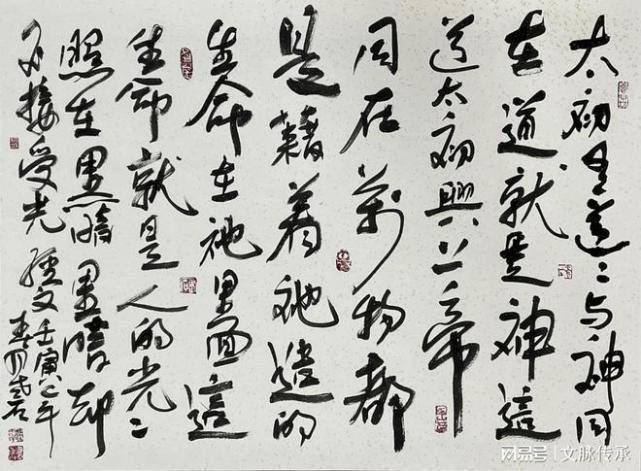 太初有道々与神同
在道就是神這
道太初與上帝
同在萬物都
是藉着祂造的
生命在祂里面這
生命就是人的光々
照在黑暗黑暗却
不接受光 經文壬寅之年
春月
网易号 | 文脉传承